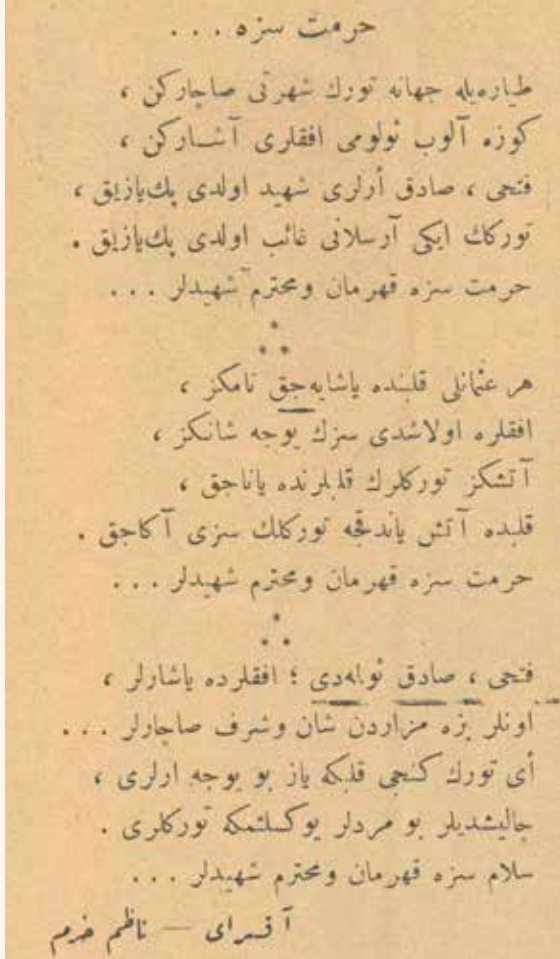 حرمت سزه . . .
طیاره‌یله جهانه تورك شهرتی صاچارکن ،
کوزه آلوب ئولومی افقلری آشــارکن ،
فتحی ، صادق أرلری شهید اولدی پك‌یازیق ،
تورکك ایکی آرسلانی غائب اولدی پك‌یازیق .
حرمت سزه قهرمان ومحترم شهیدلر . . .
* * *
هر عثمانلی قلبنده یاشایه‌جق نامکز ،
افقلره اولاشدی سزك یوجه شانکز ،
آتشکز تورکلرك قلبلرنده یاناجق ،
قلبده آتش یاندقجه تورکلك سزی آکاجق .
حرمت سزه قهرمان ومحترم شهیدلر . . .
* * *
فتحی ، صادق ئولمه‌دی ؛ افقلرده یاشارلر ،
اونلر بزه مزاردن شان وشرف صاچارلر . . .
أی تورك کنجی قلبکه یاز بو یوجه ارلری ،
چالیشدیلر بو مردلر یوکسلتمکه تورکلری .
سلام سزه قهرمان ومحترم شهیدلر . . .
آقسرای — ناظم خرم